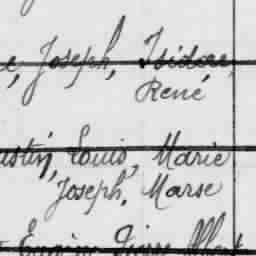 e, Joseph, Isidore,
René
ustin, Louis, Marie
Joseph, Marse
Eugène Pierre Albert